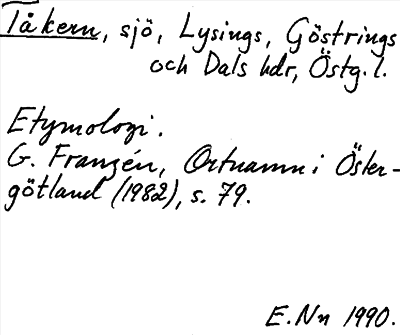 Tåkern, sjö, Lysings, Göstrings
och Dals hdr, Östg. l.
Etymologi.
G. Franzén, Ortnamn i Öster-
götland (1982), s. 79.
E. Nn 1990.